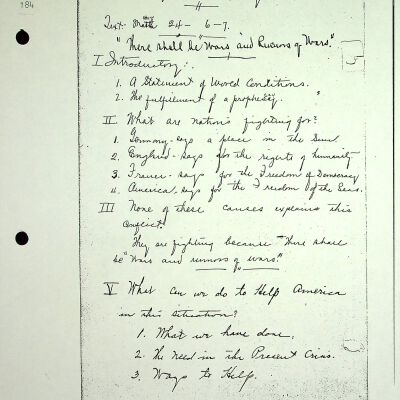 184
Text: Matt 24 - 6-7.
"There shall be Wars, and Rumors of Wars."
I Introductory:.
1. A Statement of World Conditions.
2. The fulfillment of a prophecy.
II. What are nations fighting for?
1. Germany - says a place in the Sun
2. England - says for the rights of humanity
3. France - says for the Freedom of Democracy
4. America, says for the Freedom of the Seas.
III None of these causes explains this
Conflict.
They are fighting because "There shall
be "Wars and rumors of wars."
V What can we do to Help America
in this situation?
1. What we have done.
2. The Need in the Present Crisis.
3. Ways to Help.